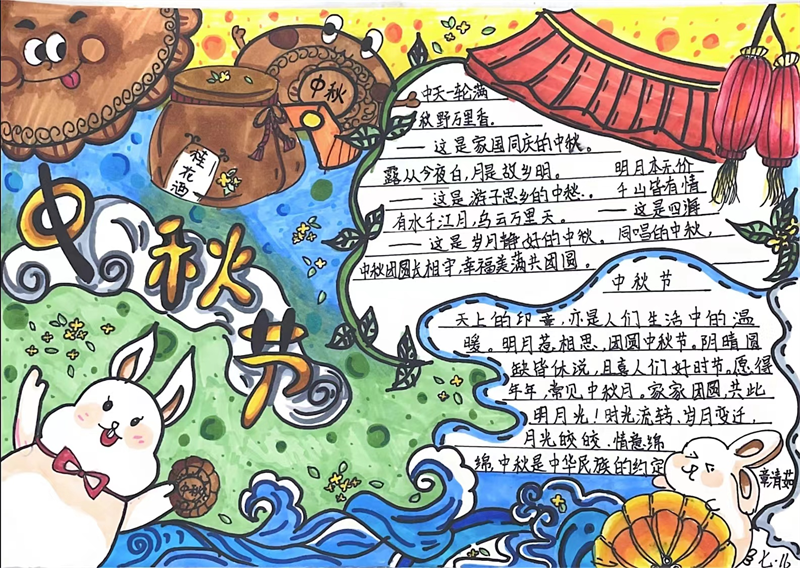 中秋节
中秋
桂花酒
中天一轮满
秋野万里香。
——这是家国同庆的中秋。
露从今夜白,月是故乡明。
——这是游子思乡的中秋。
有水千江月,乌云万里天。
——这是岁月静好的中秋。
明月本无价
千山皆有情
——这是四海
同唱的中秋,
中秋团圆长相守,幸福美满共团圆。
中秋节
天上的印章,亦是人们生活中的温
暖。明月惹相思,团圆中秋节。阴晴圆
缺皆休说,且喜人们好时节。愿得
年年,常见中秋月。家家团圆,共此
明月光!时光流转、岁月变迁,
月光皎皎,情意绵
绵,中秋是中华民族的约定
章清茹
七·16